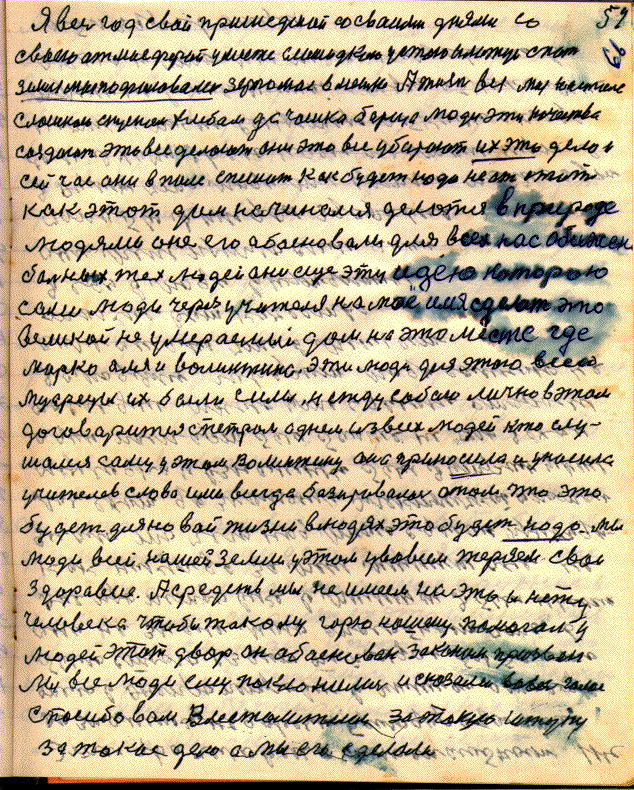 Я вен год свой пришедшой со своими днями со 59
своею атмосферой 66
земли мы подписовалися зерном А теперь все мы
слышком хлебом до чашка борща люди эти качества
создают это все делают они это все убирают их это дело
сей час они в поле спешат как будет надо не ап
как этот дом начинался делотся в природе
людями оне его абасновали для всех нас обижен
больных тех людей они еще эту идею которою
сами люди через учителя на моё имя сделают это
великой не умераемый дом на этом месте где
марко омя и волинтина. Эти люди для этого всего
мудрецы их были силы между собою лично в этом
договарится с петром однем из всех людей кто слу-
шался саму у этом волинтину она приносила и уносила
учителево слово ими всегда базировалася о том что это
будет для новай жизни в людях это будет надо мы
люди всей нашей земли у этом у вовсем теряем свое
здоровие. А средств мы не имеем на это и нету
человека чтобы такому горю нашему помогал у
людей этот двор он абаснован законом призван
мы все люди ему поклонимся и сказали
спосибо вам за такую штуку
за такое дело а мы его сделали